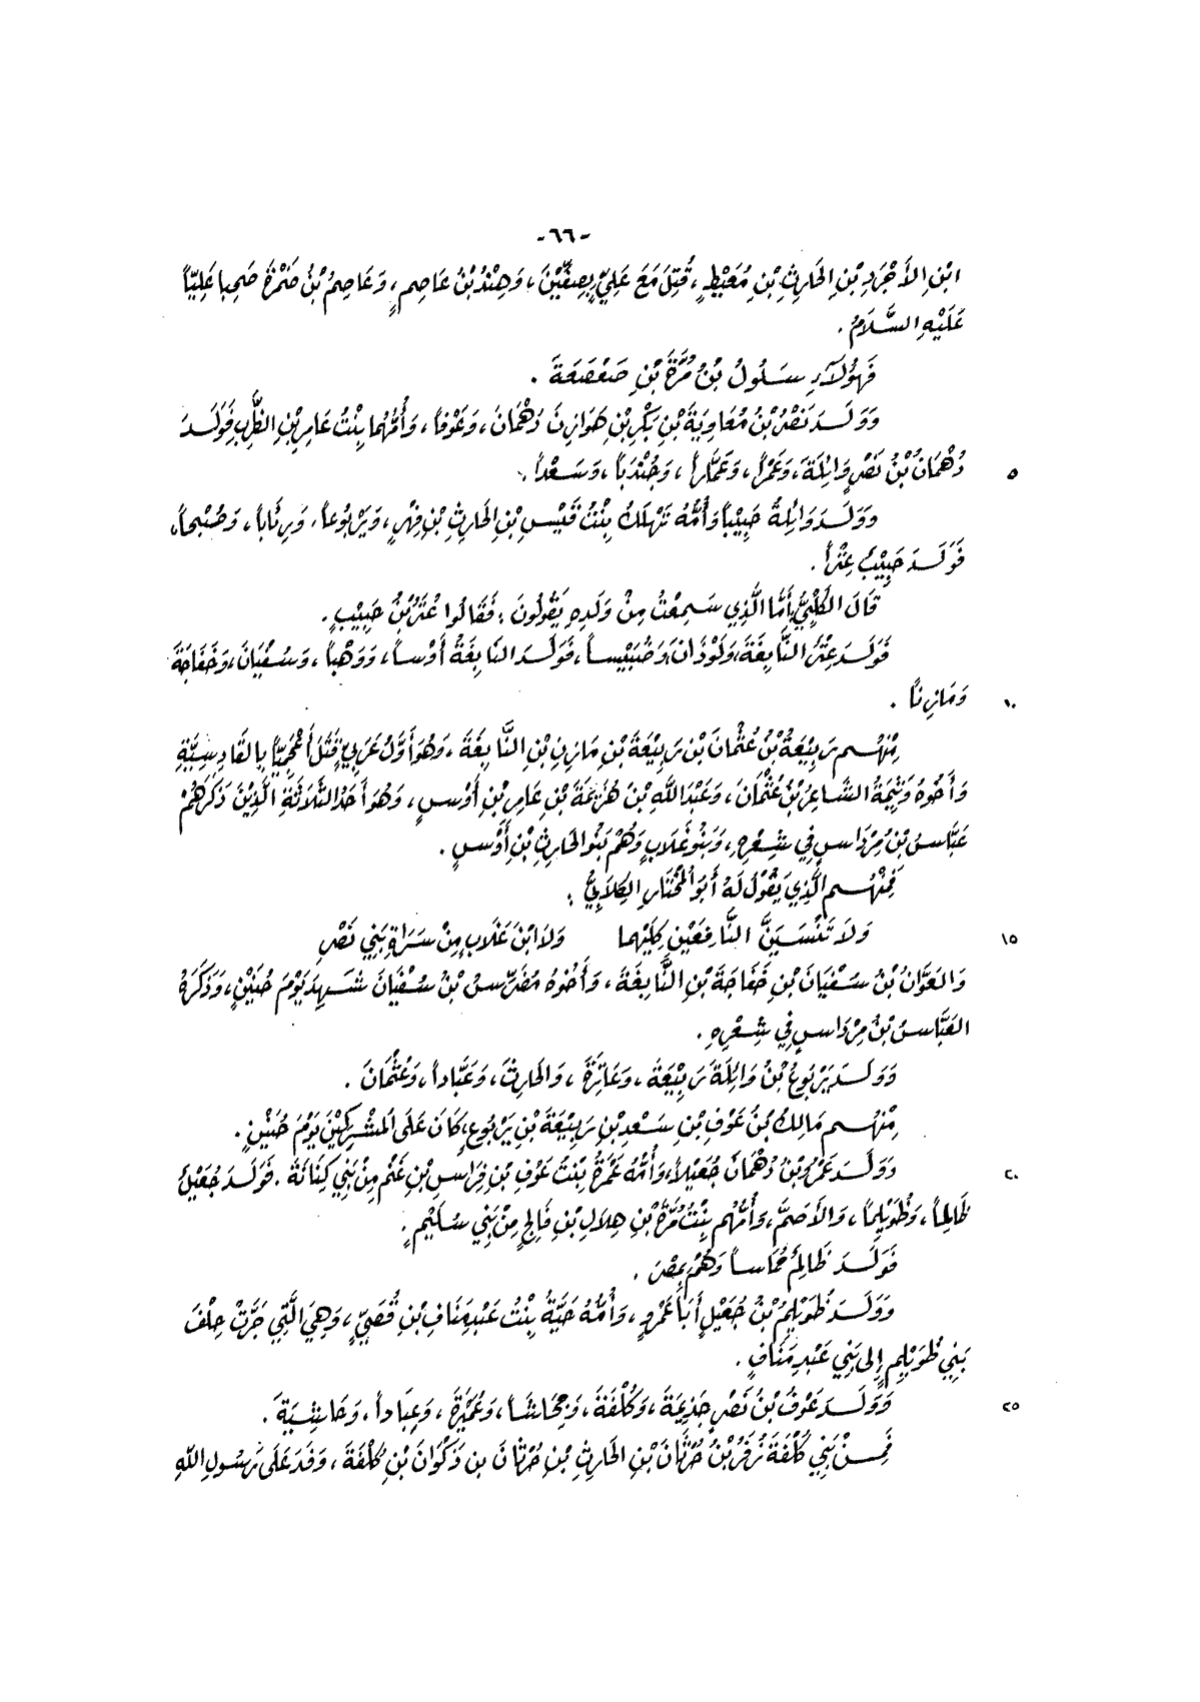 -٦٦-
ابْنِ الأَجْرَدِ بْنِ الحَارِثِ بْنِ مُعَيْطٍ، قُتِلَ مَعَ عَلِيٍّ بِصِفِّيْنَ، وَهِنْدُ بْنُ عَاصِمٍ، وَعَاصِمُ بْنُ ضَمْرَةَ صَحِبا عَلِيّاً
عَلَيْهِ السَّلَامُ.
فَهَؤُلَاءِ سَلُولُ بْنُ مُرَّةَ بْنِ صَعْصَعَةَ.
وَوَلَدَ نَصْرُ بْنُ مُعَاوِيَةَ بْنِ بَكْرِ بْنِ هَوَازِنَ دُهْمَانَ، وَعَوْفاً، وَأُمُّهُما بِنْتُ عَامِرِ بْنِ الظَّرِبِ فَوَلَدَ
٥ دُهْمَانُ بْنُ نَصْرٍ وَائِلَةَ، وَعَمْراً، وَعَمَّاراً، وَجُنْدَباً، وَسَعْداً.
وَوَلَدَ وَائِلَةُ حَبِيْباً وَأُمُّهُ تَهْلَكُ بِنْتُ قَيْسِ بْنِ الحَارِثِ بْنِ فِهْرٍ، وَيَرْبُوعاً، وَرِئَاباً، وَصُبْحاً،
فَوَلَدَ حَبِيْبٌ عِتْراً.
قَالَ الكَلْبِيُّ: أَمَّا الَّذِي سَمِعْتُ مِنْ وَلَدِهِ يَقُولُونَ: فَقَالُوا عُتَرُ بْنُ حَبِيْبٍ.
فَوَلَدَ عِتْرٌ النَّابِغَةَ، وَلَوْذَانَ، وَضُبَيْساً، فَوَلَدَ النَّابِغَةُ أَوْساً، وَوَهْباً، وَسُفْيَانَ، وَخَفَاجَةَ
١٠ وَمَازِناً.
مِنْهُم رَبِيْعَةُ بْنُ عُثْمَانَ بْنِ رَبِيْعَةَ بْنِ مَازِنِ بْنِ النَّابِغَةَ، وَهُوَ أَوَّلُ عَرَبِيٍّ قَتَلَ أَعْجَمِيّاً بِالقَادِسِيَّةِ
وَأَخُوهُ وَثِيْمَةُ الشَّاعِرُ بْنُ عُثْمَانَ، وَعَبْدُ اللَّهِ بْنُ هُزْعَةَ بْنِ عَامِرِ بْنِ أَوْسٍ، وَهُوَ أَحَدُ الثَّلَاثَةِ الَّذِيْنَ ذَكَرَهُمْ
عَبَّاسُ بْنُ مِرْدَاسٍ فِي شِعْرِهِ، وَبَنُو غَلَابٍ وَهُمْ بَنُو الحَارِثِ بْنِ أَوْسٍ.
فَمِنْهُم الَّذِي يَقُوْلُ لَهُ أَبُو المُخْتَارِ الكِلَابِيُّ:
١٥ وَلاَ تَنْسَيَنَّ النَّافِعَيْنِ كِلَيْهِما وَلاَ ابْنَ غَلَابٍ مِنْ سَرَاةِ بَنِي نَصْرِ
وَالعَوَّانُ بْنُ سُفْيَانَ بْنِ خَفَاجَةَ بْنِ النَّابِغَةَ، وَأَخُوهُ مُضَرِّسُ بْنُ سُفْيَانَ شَهِدَ يَوْمَ حُنَيْنٍ، وَذَكَرَهُ
العَبَّاسُ بْنُ مِرْدَاسٍ فِي شِعْرِهِ.
وَوَلَدَ يَرْبُوعُ بْنُ وَائِلَةَ رَبِيْعَةَ، وَعَاتِرَةَ، وَالحَارِثَ، وَعَبَّاداً، وَعُثْمَانَ.
مِنْهُم مَالِكُ بْنُ عَوْفِ بْنِ سَعْدِ بْنِ رَبِيْعَةَ بْنِ يَرْبُوعٍ، كَانَ عَلَى المُشْرِكِيْنَ يَوْمَ حُنَيْنٍ.
٢٠ وَوَلَدَ عَمْرُو بْنُ دُهْمَانَ جُعَيْلاً، وَأُمُّهُ عَمْرَةُ بِنْتُ عَوْفِ بْنِ فِرَاسِ بْنِ غَنْمٍ مِنْ بَنِي كِنَانَةَ. فَوَلَدَ جُعَيْلٌ
ظَالِماً، وَظُوَيْلِماً، وَالأَصَمَّ، وَأُمُّهُم بِنْتُ مُرَّةَ بْنِ هِلَالِ بْنِ فَالِجٍ مِنْ بَنِي سُلَيْمٍ.
فَوَلَدَ ظَالِمٌ حُمَاساً وَهُمْ بِمِصْرَ.
وَوَلَدَ ظُوَيْلِمُ بْنُ جُعَيْلٍ أَبَا عَمْرٍو، وَأُمُّهُ حَيَّةُ بِنْتُ عَبْدِ مَنَافِ بْنِ قُصَيٍّ، وَهِيَ الَّتِي جَرَّتْ حِلْفَ
بَنِي ظُوَيْلِمٍ إِلَى بَنِي عَبْدِ مَنَافٍ.
٢٥ وَوَلَدَ عَوْفُ بْنُ نَصْرٍ جَذِيْمَةَ، وَكُلْفَةَ، وَجِحَاشاً، وَعُمَيْرَةَ، وَعِبَاداً، وَحَاشِيَةَ.
فَمِنْ بَنِي كُلْفَةَ زُفَرُ بْنُ حُرْثَانَ بْنِ الحَارِثِ بْنِ حُرْثَانَ بنِ ذَكْوَانَ بْنِ كُلْفَةَ، وَفَدَ عَلَى رَسُولِ اللَّهِ